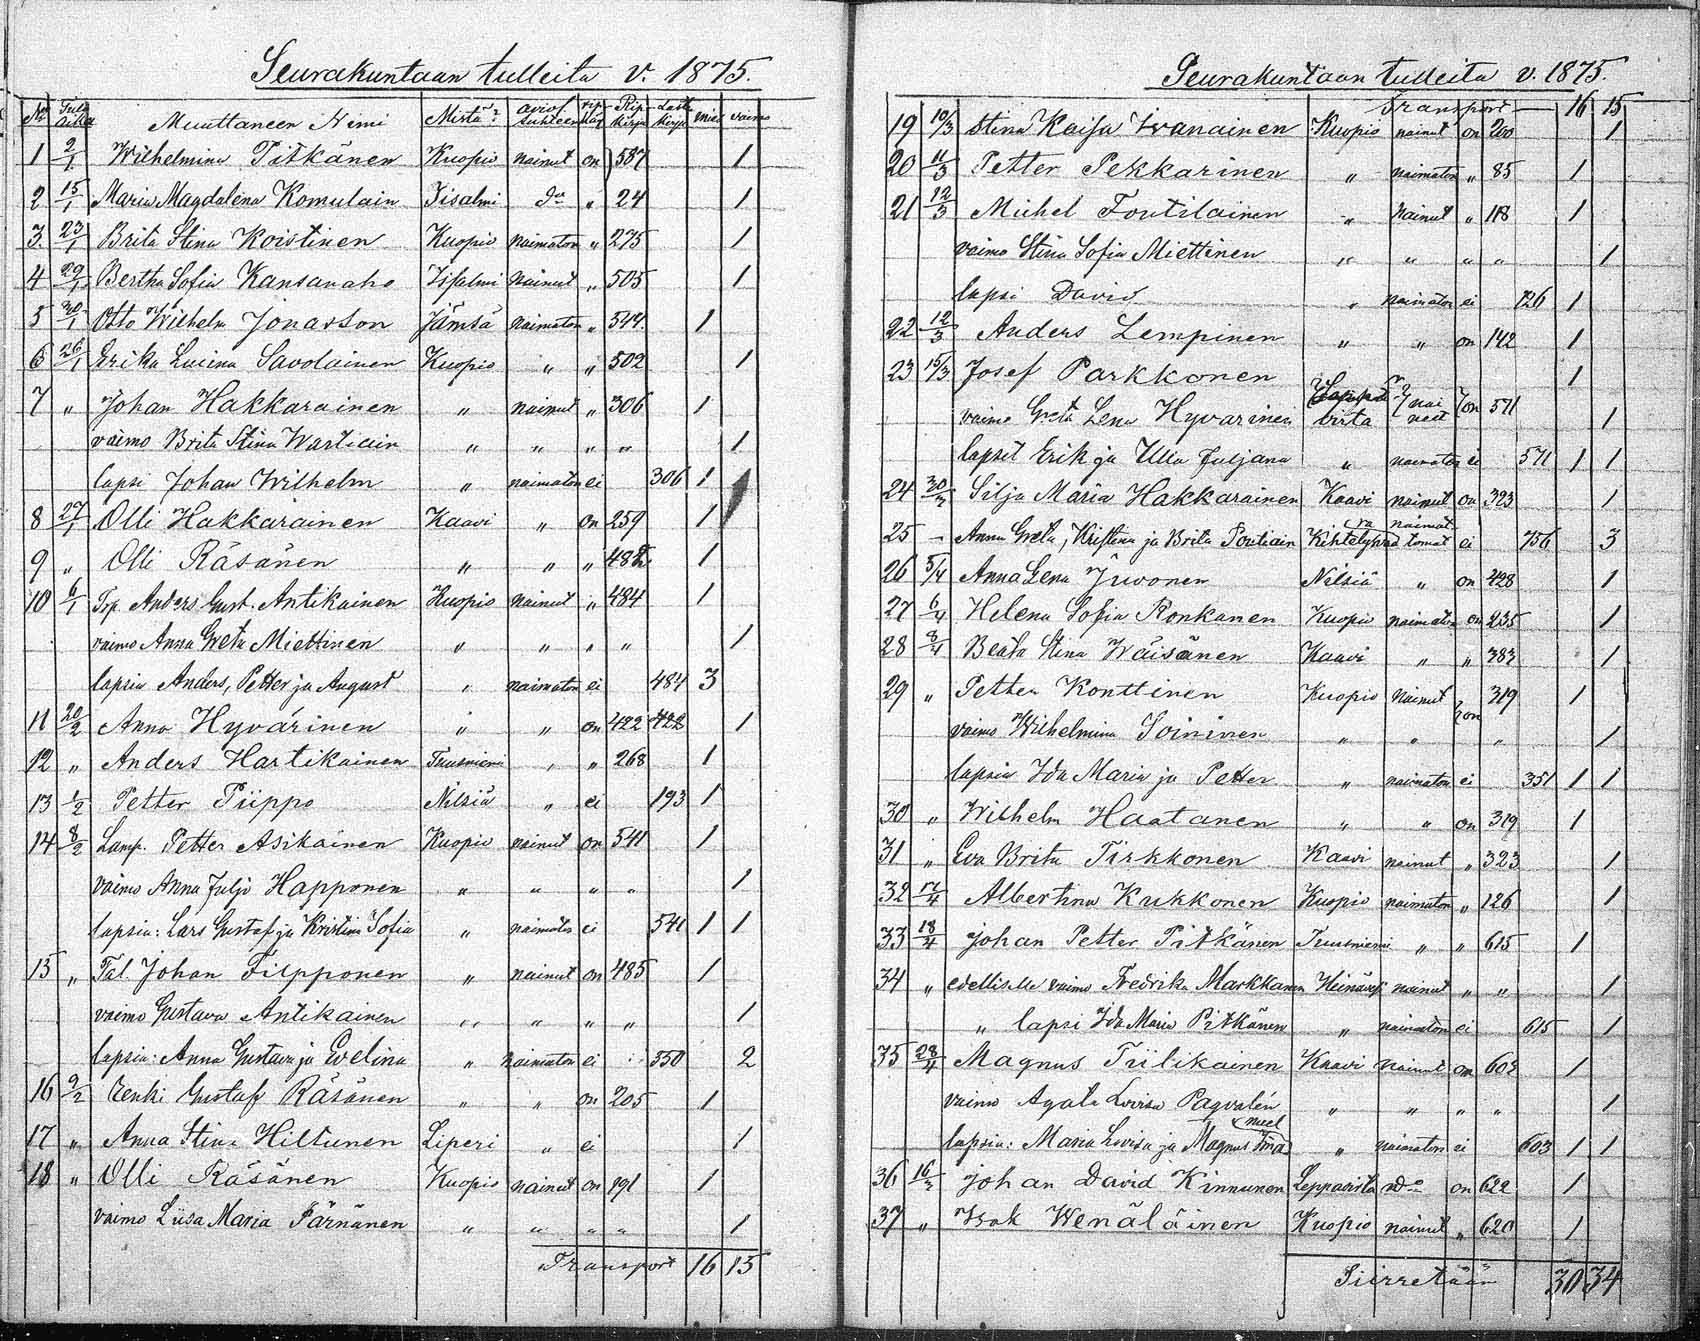 Seurakuntaan tulleita v. 1875.
No Tulo aika Muuttaneen Nimi Mistä? aviol. suhteen Rip. kirja Last. kirja mies vaimo
1 2/1 Wilhelmina Pitkänen Kuopio nainut on 587 1
2 15/1 Maria Magdalena Komulain Iisalmi do " 24 1
3 23/1 Brita Stina Koistinen Kuopio naimaton " 275 1
4 29/1 Bertha Sofia Kansanaho Iisalmi nainut " 505 1
5 30/1 Otto Wilhelm Jonasson Jämsä naimaton " 544 1
6 26/1 Erika Lucina Savolainen Kuopio " " 502 1
7 " Johan Hakkarainen " nainut " 306 1
vaimo Brita Stina Wartiain " " " " 1
lapsi Johan Wilhelm " naimaton ei 306 1
8 27/1 Olli Hakkarainen Kaavi " on 259 1
9 " Olli Räsänen " " " 482 1
10 6/1 Trp. Anders Gust. Antikainen Kuopio nainut " 484 1
vaimo Anna Greta Miettinen " " " " 1
lapsia Anders, Petter ja August " naimaton ei 484 3
11 20/2 Anna Hyvärinen " " on 422 422 1
12 " Anders Hartikainen Tuusniemi " " 268 1
13 1/2 Petter Piippo Nilsiä " ei 193 1
14 8/2 Lamp. Petter Asikainen Kuopio nainut on 541 1
vaimo Anna Julja Happonen " " " " 1
lapsia: Lars Gustaf ja Kristina Sofia " naimaton ei 541 1 1
15 " Tal. Johan Filpponen " nainut on 485 1
vaimo Gustava Antikainen " " " " 1
lapsia: Anna Gustava ja Evelina " naimaton ei 350 2
16 9/2 Renki Gustaf Räsänen " " on 205 1
17 " Anna Stina Hiltunen Liperi " ei 1
18 " Olli Räsänen Kuopio nainut on 191 1
vaimo Liisa Maria Pärnänen " " " " 1
Transport 16 15
Seurakuntaan tulleita v. 1875.
Transport 16 15
19 10/3 Stina Kaisa Iwanainen Kuopio nainut on 200 1
20 11/3 Petter Pekkarinen " naimaton " 85 1
21 12/3 Michel Toutilainen " nainut " 118 1
vaimo Stina Sofia Miettinen " " " " 1
lapsi David " naimaton ei 726 1
22 12/3 Anders Lempinen " " on 142 1
23 15/3 Josef Parkkonen 1
vaimo Greta Lena Hyvärinen virta nai neet on 571 1
lapsit Erik ja Ulla Juljana " naimaton ei 571 1 1
24 30/3 Silja Maria Hakkarainen Kaavi nainut on 323 1
25 – Anna Greta, Kristina ja Brita Poutiain Kihtelysvaara naimattomat ei 756 3
26 5/4 Anna Lena Juvonen Nilsiä " on 428 1
27 6/4 Helena Sofia Ronkanen Kuopio naimaton on 235 1
28 8/4 Beata Stina Wäisänen Kaavi " " 383 1
29 " Petter Konttinen Kuopio Nainut on 319 1
vaimo Wilhelmina Soininen " " " 1
lapsia Ida Maria ja Petter " naimaton ei 351 1 1
30 " Wilhelm Haatanen " " on 319 1
31 " Eva Brita Tirkkonen Kaavi nainut " 323 1
32 17/4 Albertina Kukkonen Kuopio naimaton " 126 1
33 18/4 Johan Petter Pitkänen Tuusniemi " " 615 1
34 " edellisen vaimo Fredrika Markkanen Heinävesi nainut " " 1
" lapsi Ida Maria Pitkänen " naimaton ei 615 1
35 28/4 Magnus Tiilikainen Kaavi nainut on 603 1
vaimo Agata Lovisa Pagvalén " " " " 1
lapsia: Maria Lovisa ja Magnus " naimaton ei 603 1 1
36 16/3 Johan David Kinnunen Leppävirta do on 622 1
37 " Isak Wenäläinen Kuopio nainut " 620 1
Siirretään 30 34